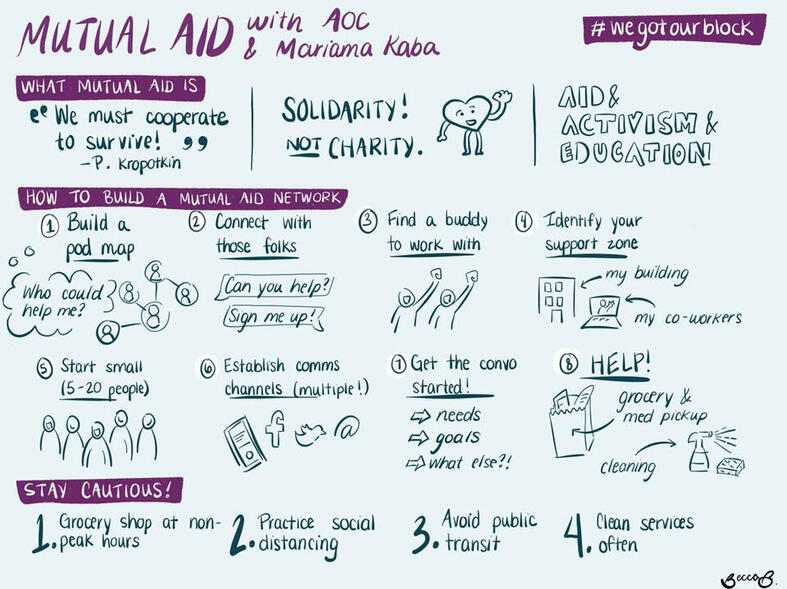 MUTUAL AID with AOC
& Mariama Kaba
#wegotourblock
WHAT MUTUAL AID IS
"We must cooperate
to survive!"
-P. Kropotkin
SOLIDARITY!
NOT CHARITY.
AID &
ACTIVISM &
EDUCATION!
HOW TO BUILD A MUTUAL AID NETWORK
1 Build a
pod map
Who could
help me?
2 Connect with
those folks
Can you help?
Sign me up!
3 Find a buddy
to work with
4 Identify your
support zone
my building
my co-workers
5 Start small
(5-20 people)
6 Establish comms
channels (multiple!)
f
@
7 Get the convo
started!
⇨ needs
⇨ goals
⇨ what else?!
8 HELP!
grocery &
med pickup
cleaning
STAY CAUTIOUS!
1. Grocery shop at non-
peak hours
2. Practice social
distancing
3. Avoid public
transit
4. Clean services
often
BeccaB.